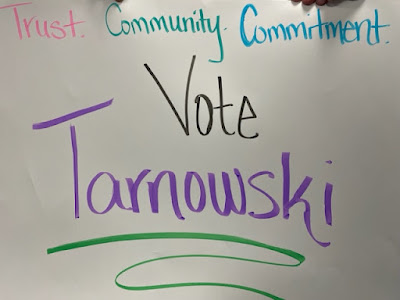 Trust. Community. Commitment.
Vote
Tarnowski